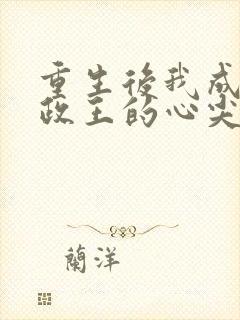 重生後我成
政王的心尖
蘭洋